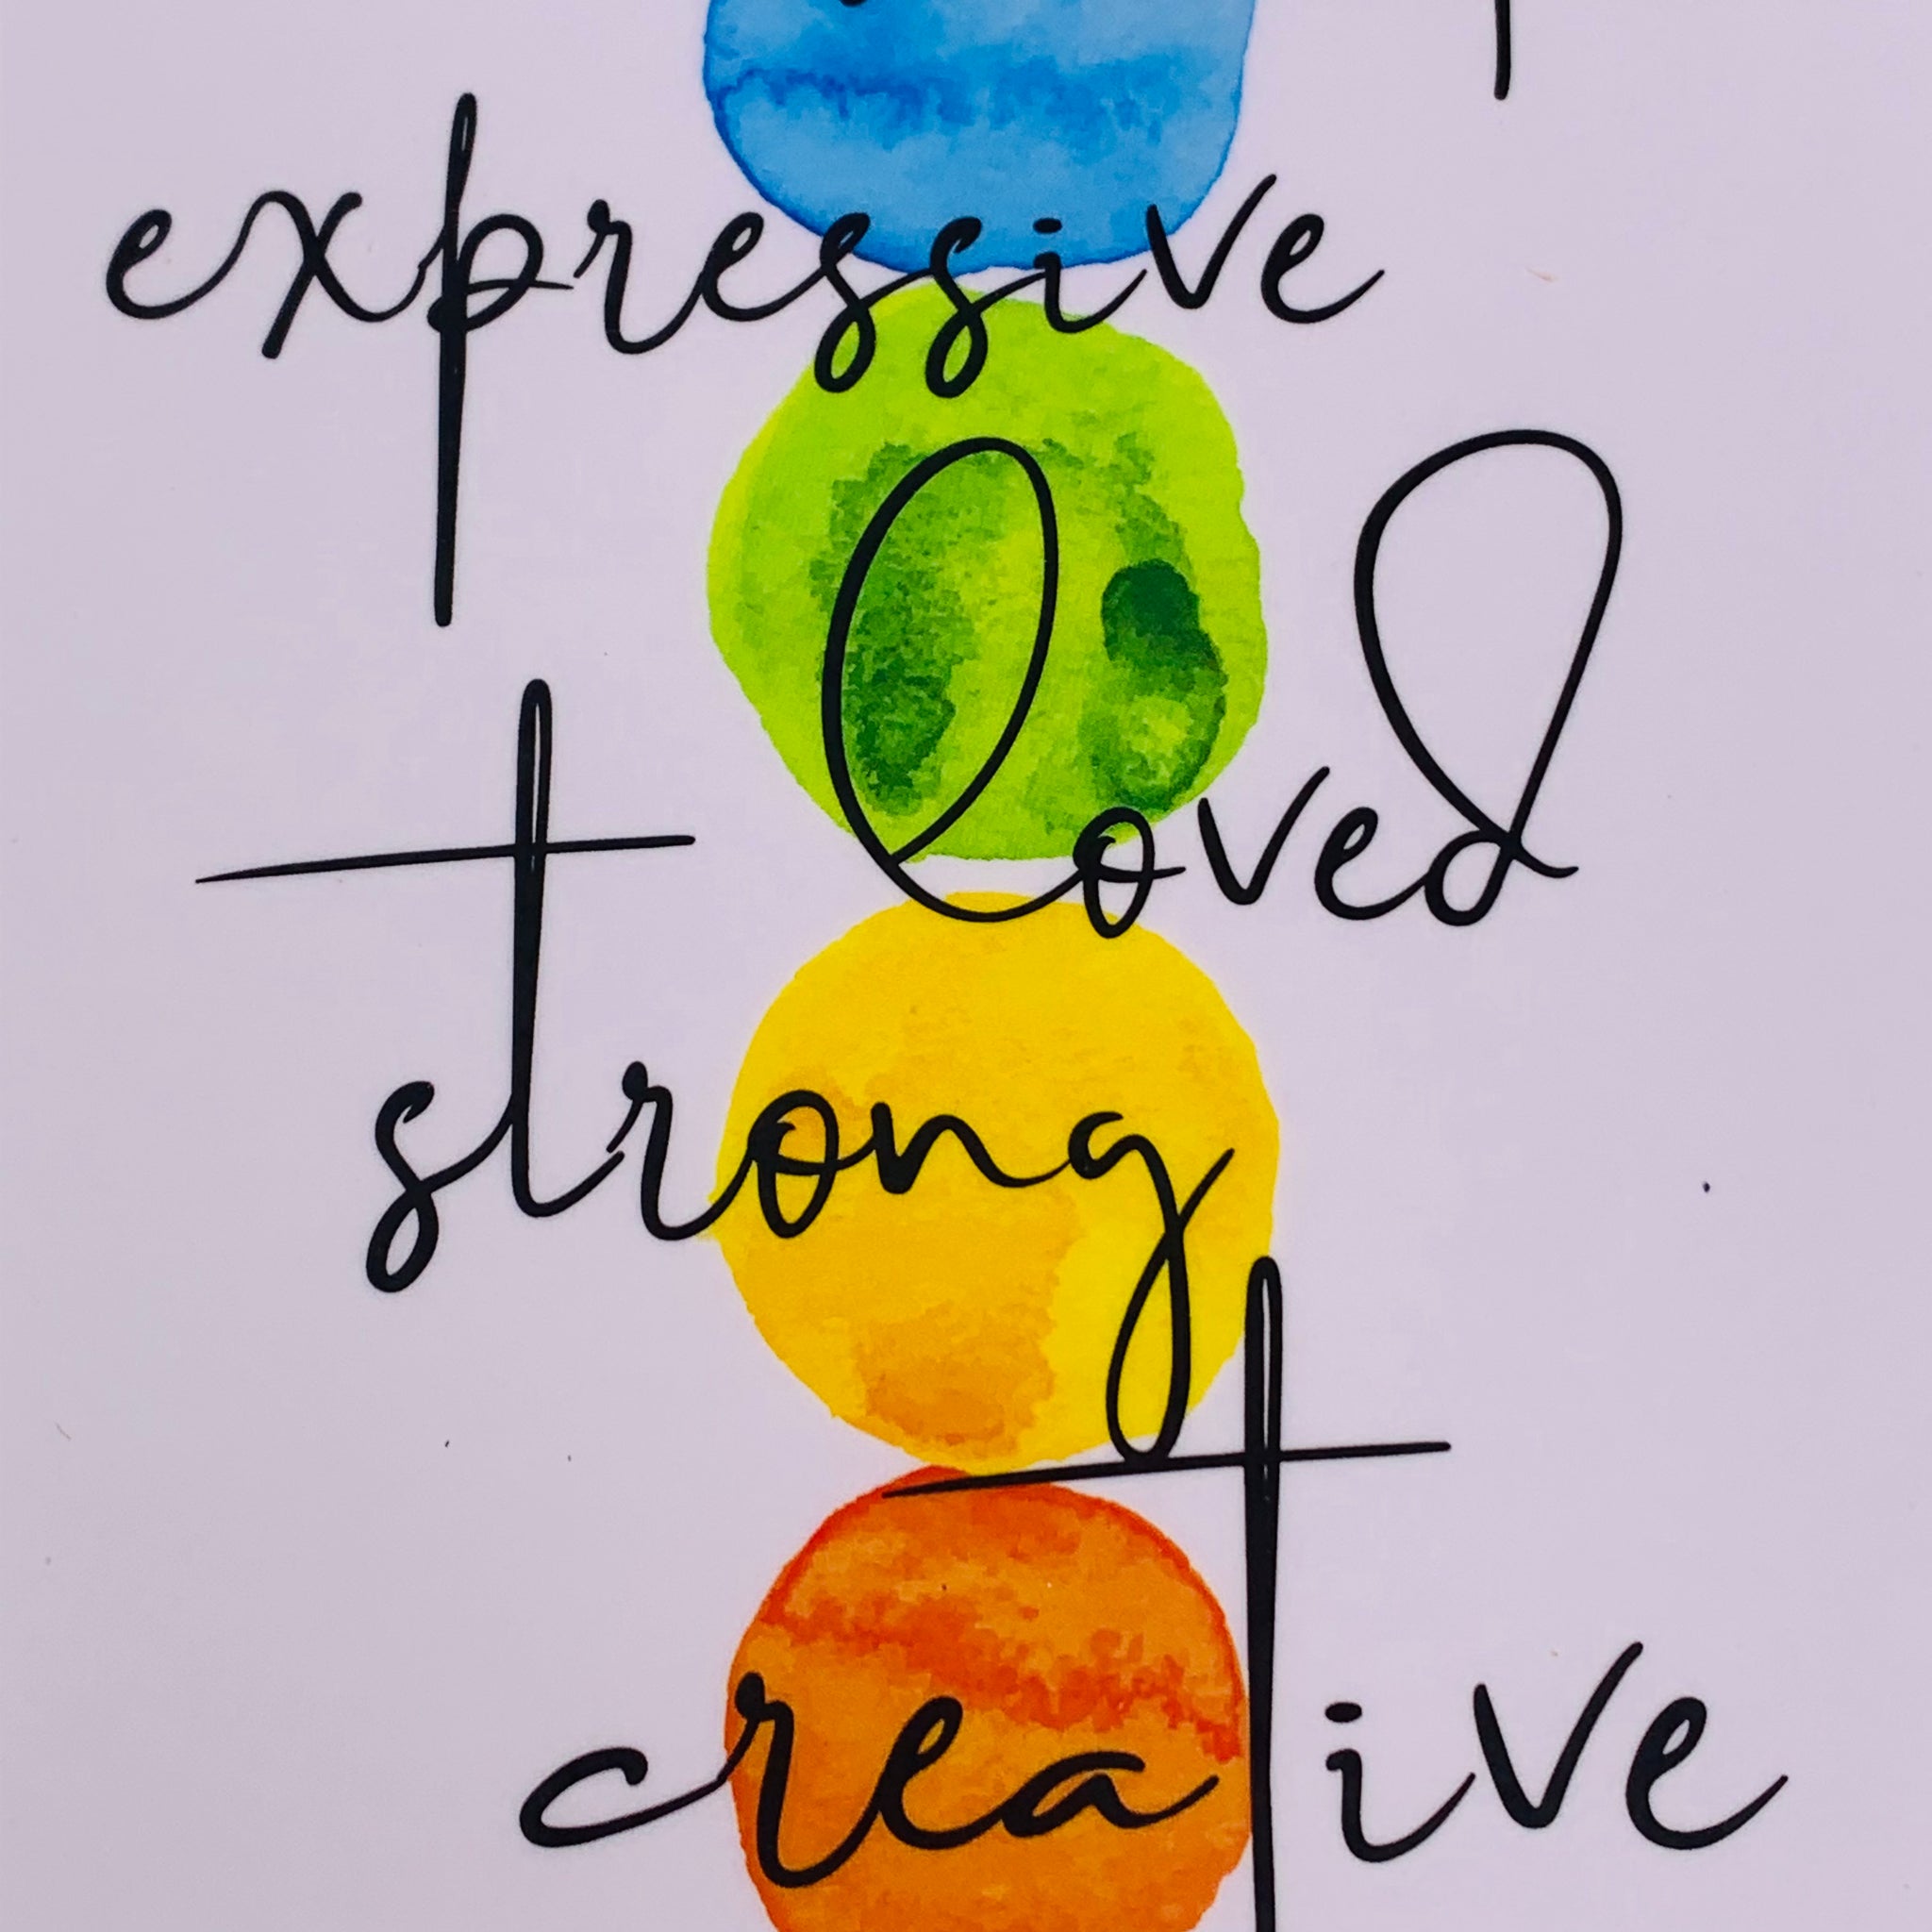 expressive
loved
strong
creative